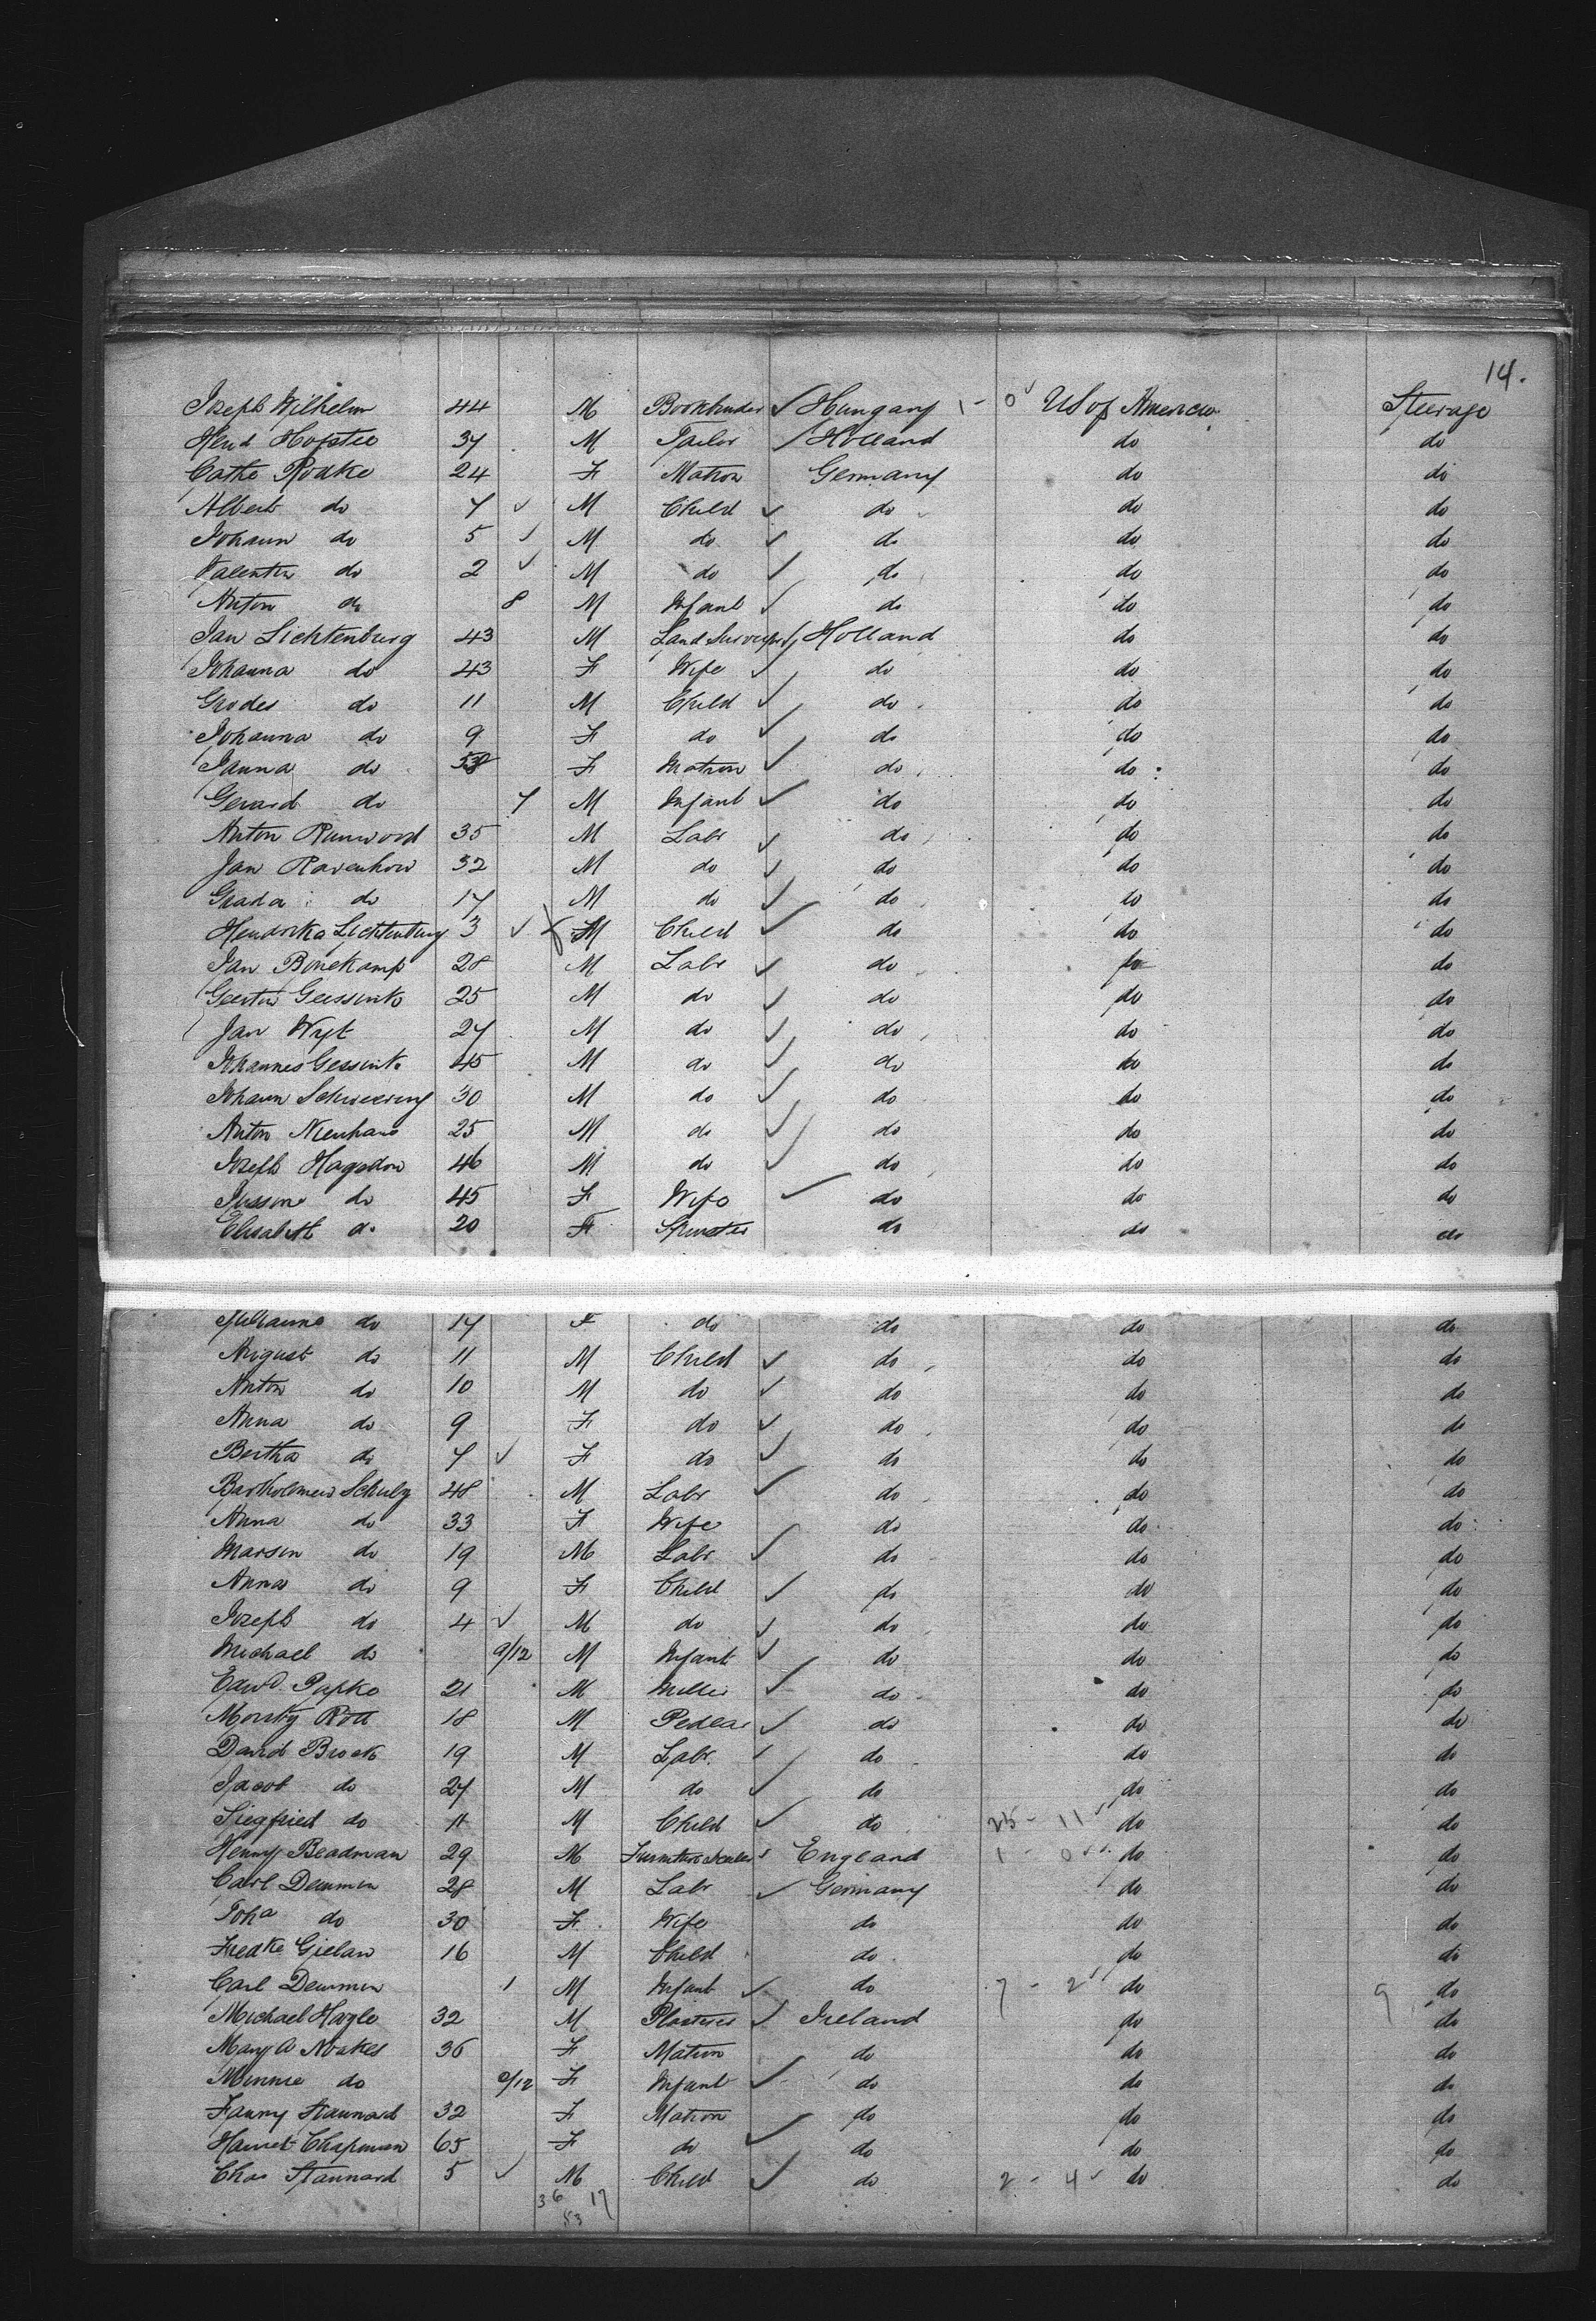 14.
Joseph Wilhelm 44 M Bookbinder ✓ Hungary 1 - 0 ✓ US of America Steerage
Hend Hofstee 37 M Tailor ✓ Holland do do
Cathe Rodke 24 F Matron Germany do do
Albert do 7 ✓ M Child ✓ do do do
Johann do 5 ✓ M do ✓ do do do
Valentin do 2 ✓ M do ✓ do do do
Anton do 8 M Infant ✓ do do do
Jan Lichtenburg 43 M Land Surveyor ✓ Holland do do
Johanna do 43 F Wife ✓ do do do
Grades do 11 M Child ✓ do do do
Johanna do 9 F do ✓ do do do
Janna do F Matron ✓ do do do
Gerard do 7 M Infant ✓ do do do
Anton Runwood 35 M Labr ✓ do do do
Jan Ravenhow 32 M do ✓ do do do
Grada do 17 M do ✓ do do do
Hendrika Lichtenburg 3 ✓ X M Child ✓ do do do
Jan Bonekamp 28 M Labr ✓ do do do
Geertin Geessink 25 M do ✓ do do do
Jan Wyt 27 M do ✓ do do do
Johannes Gessink 45 M do ✓ do do do
Johann Schweering 30 M do ✓ do do do
Anton Nienhaus 25 M do ✓ do do do
Joseph Hagedon 46 M do ✓ do do do
do 45 F Wife ✓ do do do
Elisabeth do 20 F Spinster do do do
Julianna do 17 F do do do do
August do 11 M Child ✓ do do do
Anton do 10 M do ✓ do do do
Anna do 9 F do ✓ do do do
Bertha do 7 ✓ F do ✓ do do do
Bartholomew Schulz 48 M Labr ✓ do do do
Anna do 33 F Wife do do do
Marsin do 19 M Labr ✓ do do do
Anna do 9 F Child ✓ do do do
Joseph do 4 ✓ M do ✓ do do do
Michael do 9/12 M Infant ✓ do do do
Edwd Papke 21 M Miller ✓ do do do
Moritz Rott 18 M Pedlar ✓ do do do
David Brock 19 M Labr. ✓ do do do
Jacob do 27 M do ✓ do do do
Siegfried do 11 M Child ✓ do 25 - 11 ✓ do do
Henry Beadman 29 M Furniture Dealer ✓ England 1 - 0 ✓ do do
Carl Demmin 28 M Labr ✓ Germany do do
Joha do 30 F Wife do do do
Fredke Gielaw 16 M Child do do do
Carl Demmin 1 M Infant ✓ do 7 - 2 ✓ do 9 do
Michael Hagle 32 M Plasterer ✓ Ireland do do
Mary A Noakes 36 F Matron do do do
Minnie do 9/12 F Infant ✓ do do do
Fanny Stannard 32 F Matron do do do
Harriet Chapman 65 F do ✓ do do do
Chas Stannard 5 ✓ M Child ✓ do 2 - 4 ✓ do do
36 17
53